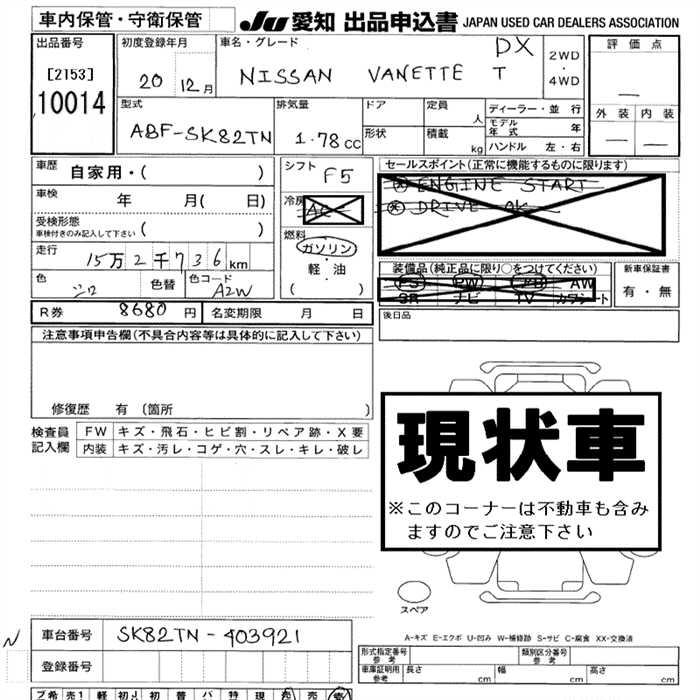 車内保管・守衛保管 JU 愛知 出品申込書 JAPAN USED CAR DEALERS ASSOCIATION
出品番号 初度登録年月 車名・グレード 評価点
[2153] 20 12月 NISSAN VANETTE T DX 2WD・4WD
10014
外装 内装
型式 排気量 ドア 定員 人 ディーラー・並行
ABF-SK82TN 1.78cc 形状 積載 kg モデル年式 年
ハンドル 左・右
車歴 自家用・( )
シフト F5
セールスポイント(正常に機能するものに限ります)
車検 年 月( 日)
冷房 AC
ENGINE START
DRIVE OK
受検形態 ( )
車検付きのみ記入して下さい
燃料 ガソリン・軽油 ( )
走行 15万2千736km
色 シロ 色替 色コード A2W
装備品(純正品に限り○をつけてください) 新車保証書
PS PW AB AW 有・無
SR ナビ TV カワシート
R券 8680円 名変期限 月 日 後日品
注意事項申告欄(不具合内容等は具体的に記入して下さい)
修復歴 有 (箇所 )
検査員記入欄 FW キズ・飛石・ヒビ割・リペア跡・X要
内装 キズ・汚レ・コゲ・穴・スレ・キレ・破レ
現状車
※このコーナーは不動車も含み
ますのでご注意下さい
スペア
A-キズ E-エクボ U-凹み W-補修跡 S-サビ C-腐食 XX-交換済
N 車台番号 SK82TN-403921
登録番号
形式指定番号 参考 類別区分番号 参考
車庫証明用 参考 長さ cm 幅 cm 高さ cm